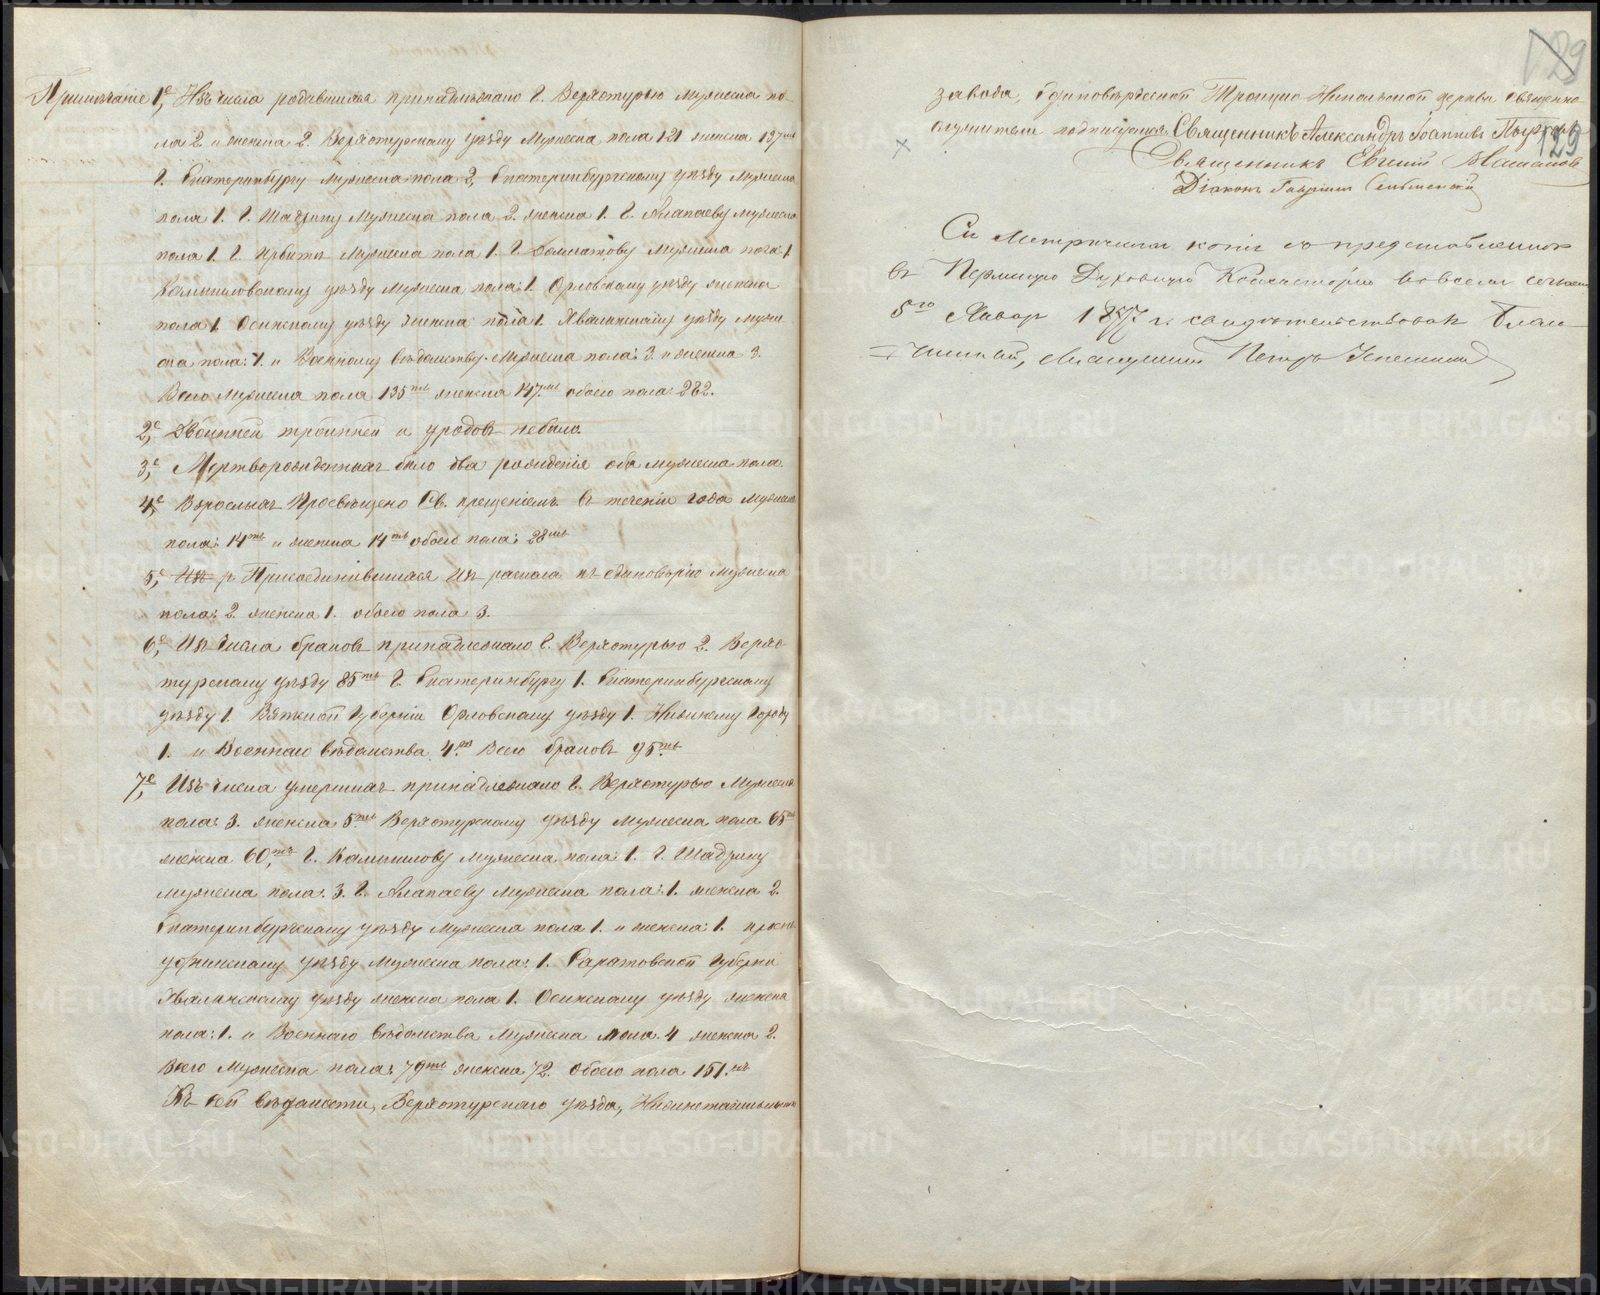 Примѣчаніе 1е, Изъ числа родившихся принадлежало Г. Верхотурью мужеска по-
ла 2 и женска 2. Верхотурскому уѣзду мужеска пола 121 женска 137мь
Г. Екатеринбургу мужеска пола 2, Екатеринбургскому уѣзду мужеска
пола 1. Г. Шадрину мужеска пола 2. женска 1. Г. Алапаеву мужеска
пола 1. Г. Ирбити мужеска пола 1. Г. Далматову мужеска пола: 1
Камышловскому уѣзду мужеска пола: 1. Орловскому уѣзду женска
пола 1. Осинскому уѣзду женска пола 1. Хвалынскому уѣзду муже
ска пола: 1. и Военному вѣдомству мужеска пола: 3. и женска 3.
Всего мужеска пола 135ть женска 147мь обоего пола: 282.
2е, Двоинней троинней и уродовъ небыло.
3е, Мертворожденныхъ было два рожденія оба мужеска пола.
4е, Взрослыхъ Просвѣщено Св. крещеніемъ въ теченіи года мужеска
пола: 14ть и женска 14ть обоего пола: 28мь
5е, Присоединившихся Изъ раскола къ единовѣрію мужеска
пола: 2. женска 1. обоего пола 3.
6е, Изъ числа браковъ принадлежало Г. Верхотурью 2. Верхо-
турскому уѣзду 85ть Г. Екатеринбургу 1. Екатеринбургскому
уѣзду 1. Вятской Губерніи Орловскому уѣзду 1. Нижнему Городу
1. и Военнаго вѣдомства 4. Всего браковъ 95ть
7е, Изъ числа умершихъ принадлежало Г. Верхотурью Мужеска
пола: 3. женска 5ть Верхотурскому уѣзду мужеска пола 65ть
женска 60,ть Г. Камышлову мужеска пола: 1. Г. Шадрину
мужеска пола: 3. Г. Алапаеву мужеска пола: 1. женска 2.
Екатеринбургскому уѣзду мужеска пола 1. и женска: 1. красно
уфимскому уѣзду мужеска пола: 1. Саратовской Губерніи
Хвалынскому уѣзду женска пола 1. Осинскому уѣзду женска
пола: 1. и Военнаго вѣдомства Мужеска пола 4 женска 2.
Всего мужеска пола: 79ть женска 72. Обоего пола 151.нъ
Къ сей вѣдомости, Верхотурскаго уѣзда, Нижнетагильскаго
129
завода, Единовѣрческой Троицко Никольской церкви священно-
служители подписуемся Священникъ Александръ Іоанновъ
129
Священникъ Евгеній
Діаконъ Гавріилъ
Сіи Метрическія копіи со представленныхъ
въ Пермскую Духовную Консисторію вовсемъ сходны
5го Январ 1877 г. свидѣтельствовалъ Благо-
чинный, Священникъ Петръ
METRIKI.GASO-URAL.RU